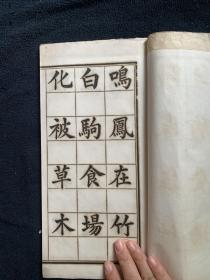 鳴鳳在竹
白駒食場
化被草木